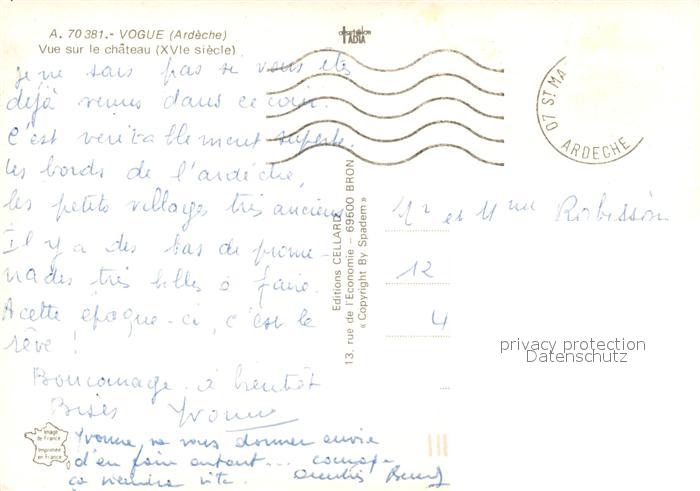 A. 70 381.- VOGUE (Ardèche)
Vue sur le château (XVIe siècle)
je ne sais pas si vous êtes
déjà venus dans ce coin.
C'est véritablement superbe.
Les bords de l'ardèche,
les petits villages très anciens
Il y a des tas de prome-
nades très belles à faire.
A cette époque-ci, c'est le
rêve !
Bon courage. à bientôt
Bises Yvonne
Yvonne va vous donner envie
d'en faire autant... courage
ça viendra vite.
Image de France
Imprimée en France
Editions CELLARD
13, rue de l'Economie - 69500 BRON
«Copyright By Spadem»
07 ST MA
ARDECHE
Mr et Mme
12
4
privacy protection
Datenschutz